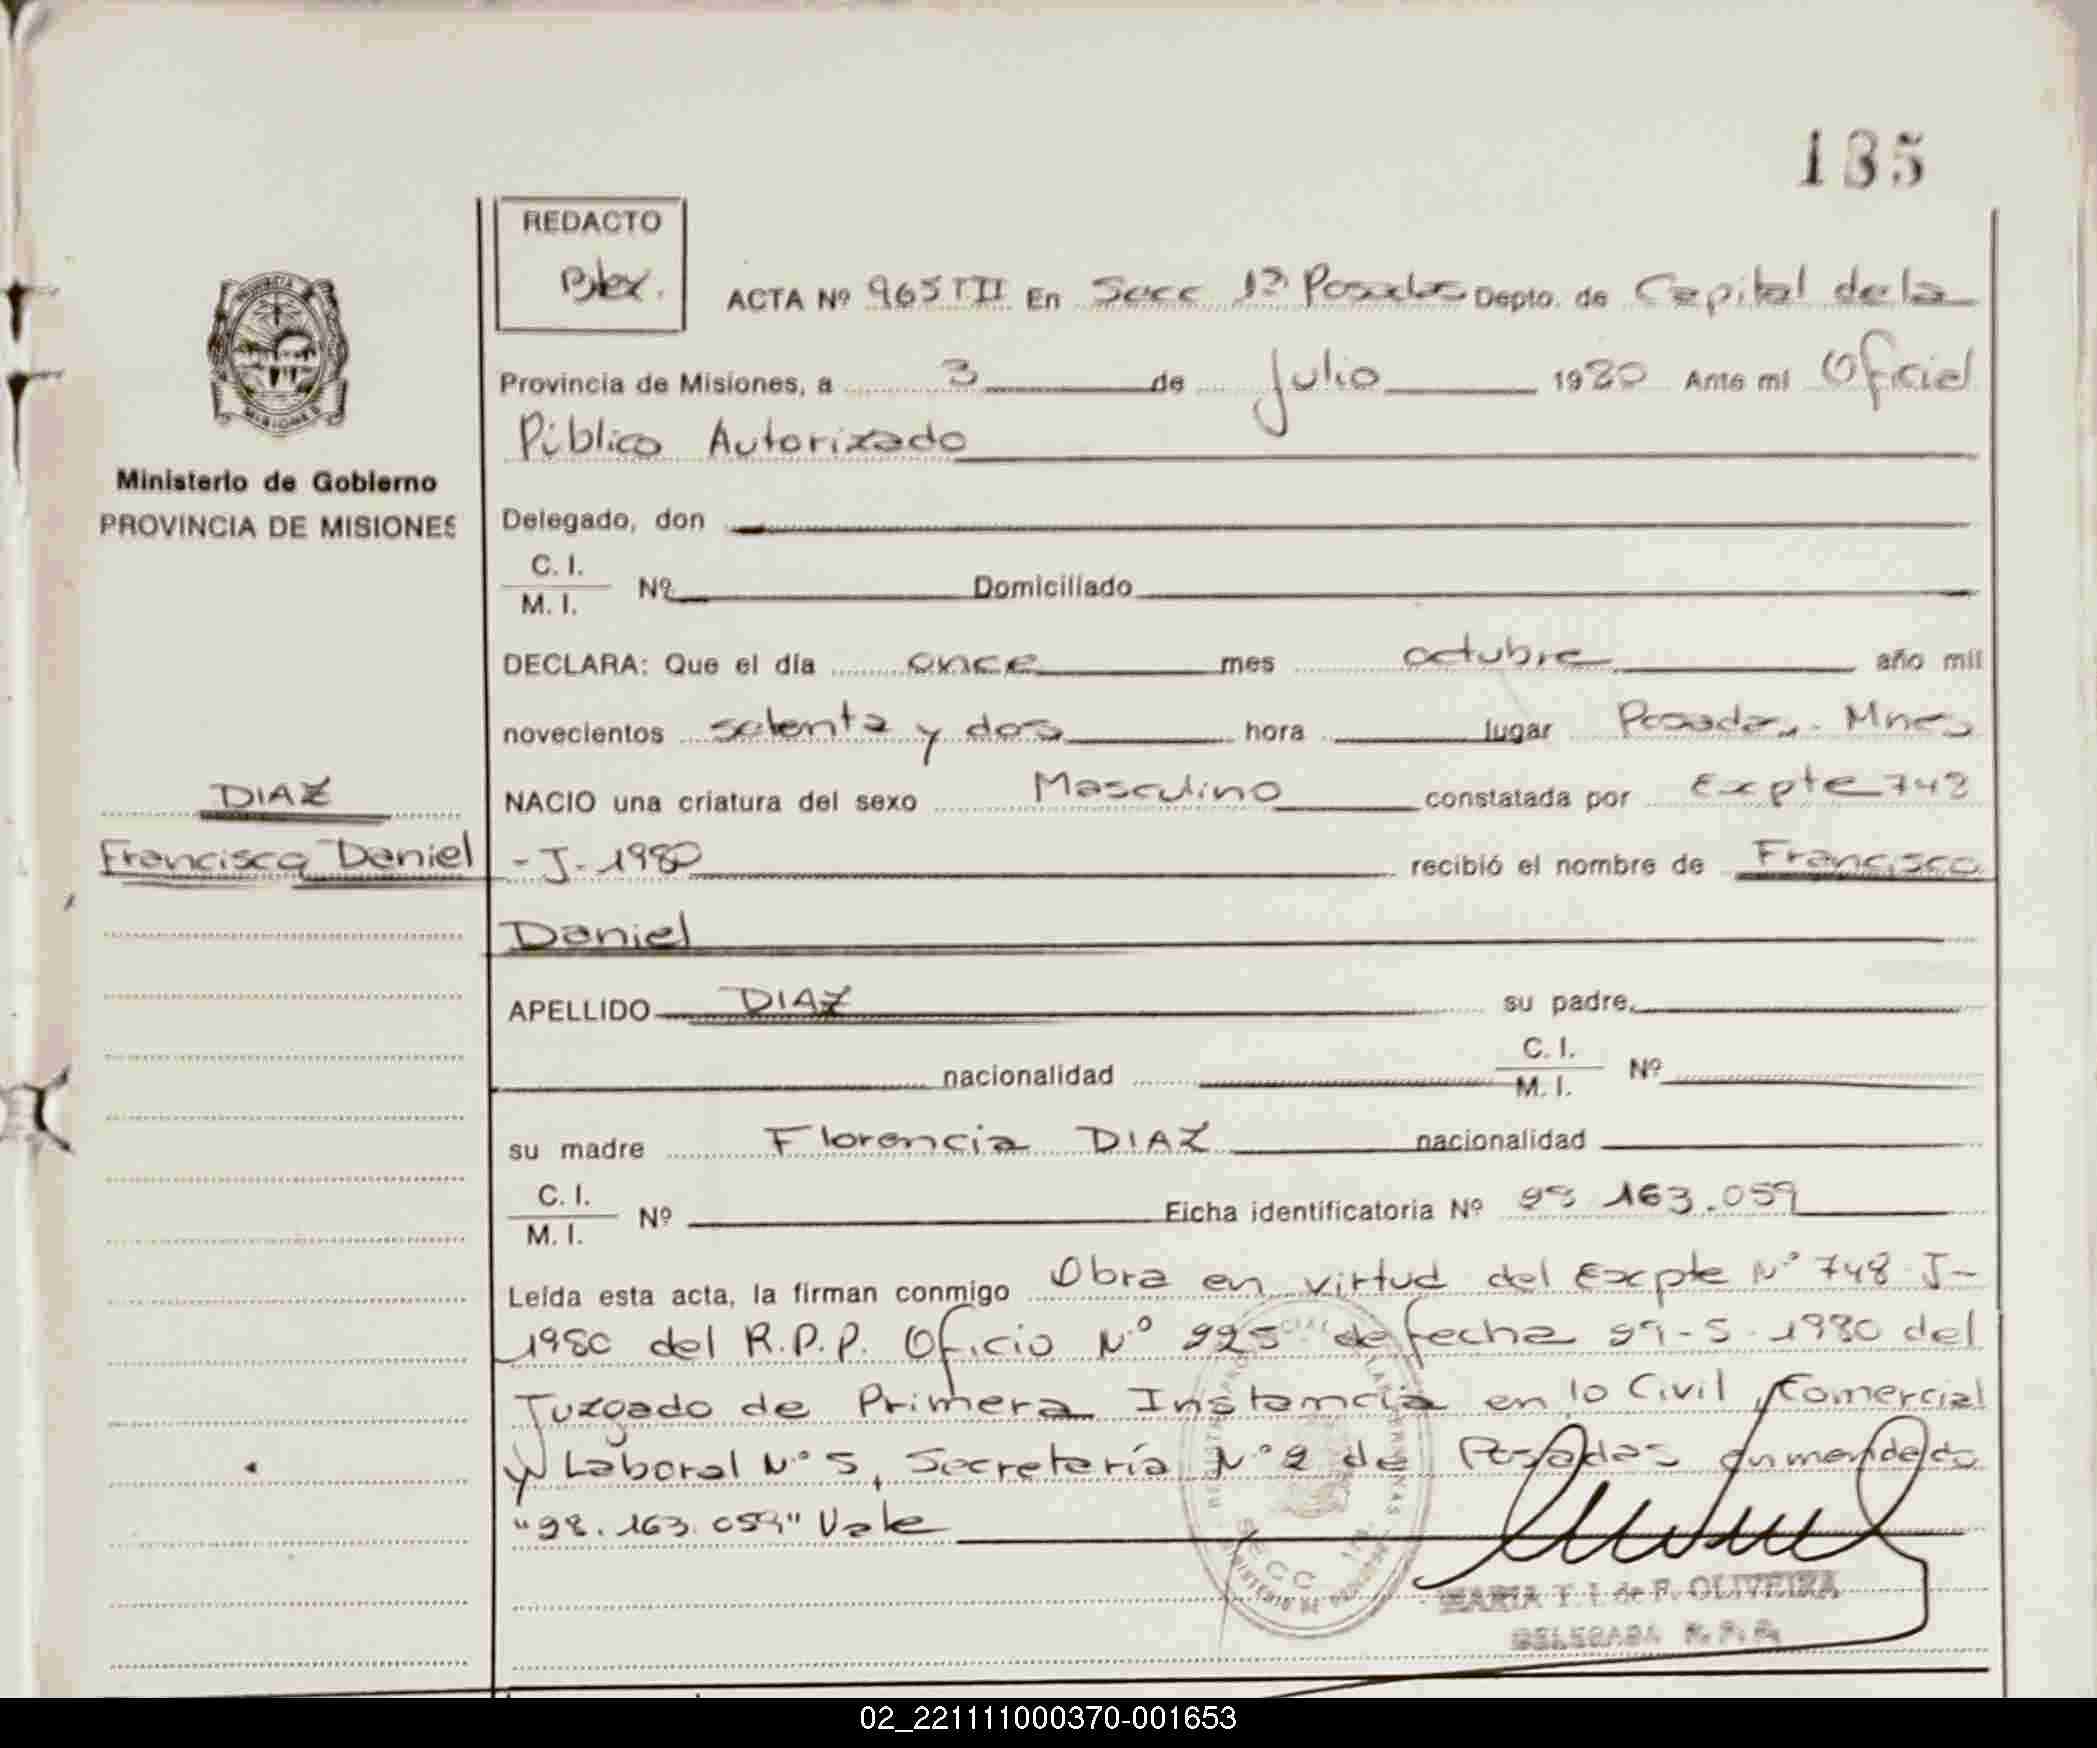 135
REDACTO
ACTA Nº 965 TIII En Secc 1ª Posadas Depto. de Capital de la
Provincia de Misiones, a 3 de Julio 1980 Ante mi Oficial
Público Autorizado
Ministerio de Gobierno
PROVINCIA DE MISIONES
Delegado, don
C. I.
M. I.
Nº Domiciliado
DECLARA: Que el día once mes octubre año mil
novecientos setenta y dos hora lugar Posadas, Mnes
DIAZ
Francisco Daniel
NACIO una criatura del sexo Masculino constatada por Expte 748
-J-1980 recibió el nombre de Francisco
Daniel
APELLIDO DIAZ su padre,
nacionalidad C. I. M. I. Nº
su madre Florencia DIAZ nacionalidad
C. I.
M. I.
Nº Ficha identificatoria Nº 98 163.059
Leída esta acta, la firman conmigo Obra en virtud del Expte Nº 748 J-
1980 del R.P.P. Oficio Nº 925 de fecha 29-5-1980 del
Juzgado de Primera Instancia en lo Civil, Comercial
y Laboral Nº 5, Secretaría Nº 2 de Posadas enmendado
"98.163.059" Vale
SECC 1ª
MARIA T. I. de F. OLIVEIRA
DELEGADA R. P. P.
02_221111000370-001653